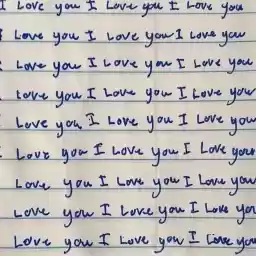 I Love you I Love you I Love you
I Love you I Love you I Love you
Love you I Love you I Love you
Love you I Love you I Love you
Love you I Love you I Love you
Love you I Love you I Love you
Love you I Love you I Love you
Love you I Love you I Love you
Love you I Love you I Love you